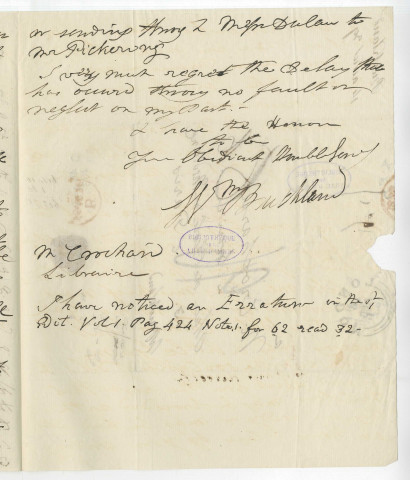 or sending throg h Messrs Dulau to
Mr Pickering
I very much regret the Delay that
has occurd throg no fault or
neglect on my Part. –
I have the Honor
to be
Your Obedient Humbl Servt
Wm Buckland
M Crochard
Libraire
I have noticed an Erratum in the
Dit. Vol 1. Pag 424 Note 1. for 62 read 32 –